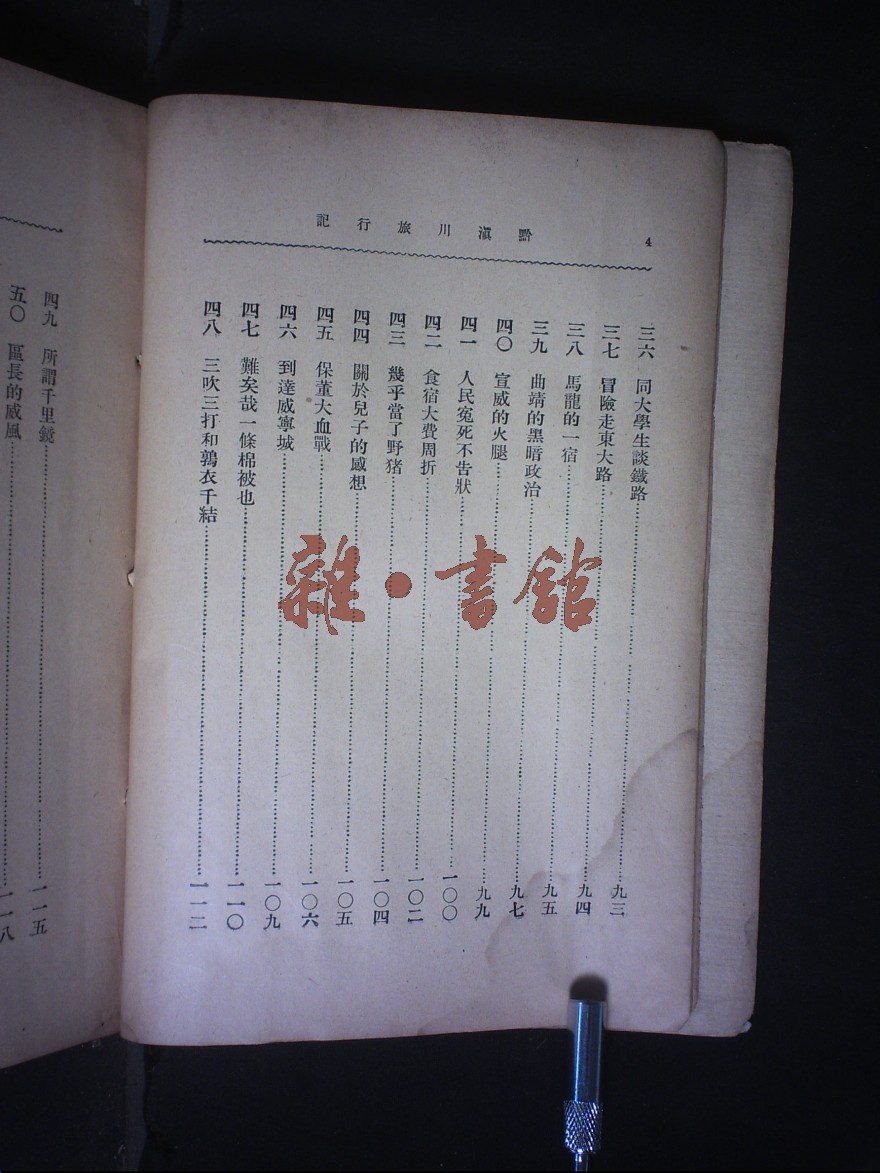 黔滇川旅行記
4
三六 同大學生談鐵路……九三
三七 冒險走東大路……九四
三八 馬龍的一宿……九五
三九 曲靖的黑暗政治……九七
四〇 宣威的火腿……九九
四一 人民冤死不告狀……一〇〇
四二 食宿大費周折……一〇二
四三 幾乎當了野猪……一〇四
四四 關於兒子的感想……一〇五
四五 保董大血戰……一〇六
四六 到達威寧城……一〇九
四七 難矣哉一條棉被也……一一〇
四八 三吹三打和鶉衣千結……一一二
四九 所謂千里鏡……一一五
五〇 區長的威風……一一八
雜·書館